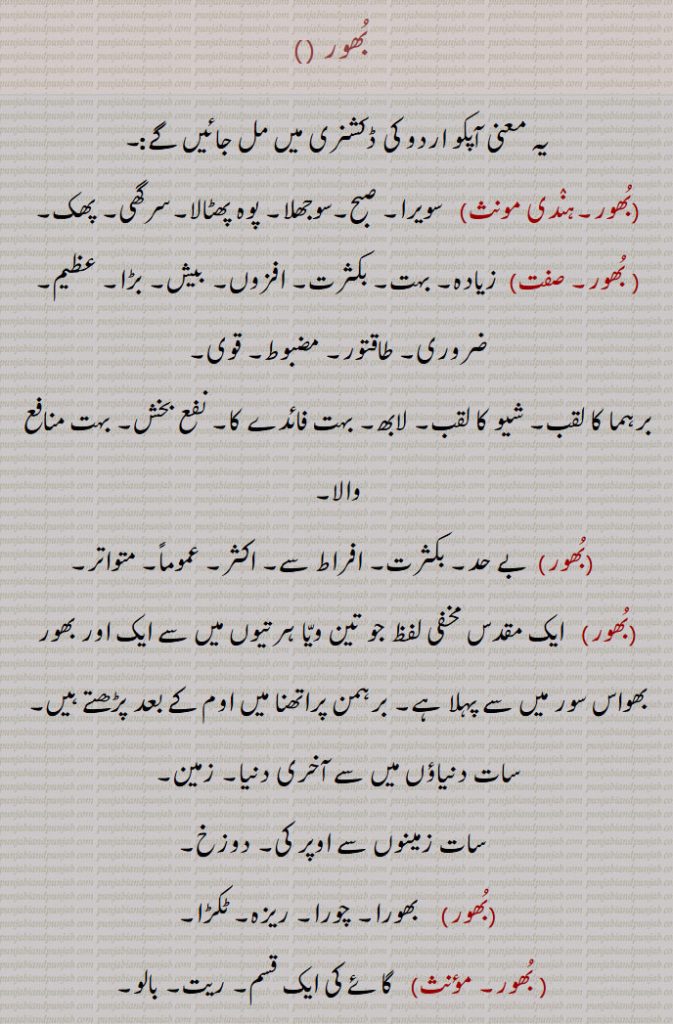 بُھور ()
یہ معنی آپکو اردو کی ڈکشنری میں مل جائیں گے:۔
(بُھور۔ ہنْدی مونث) سویرا۔ صبح۔ سوجھلا۔ پوہ پھٹالا۔ سرگھی۔ پھک۔
(بُھور۔ صفت) زیادہ۔ بہت۔ بکثرت۔ افزوں۔ بیش۔ بڑا۔ عظیم۔
ضروری۔ طاقتور۔ مضبوط۔ قوی۔
برہما کا لقب۔ شیو کا لقب۔ لابھ۔ بہت فائدے کا۔ نفع بخش۔ بہت منافع
والا۔
(بُھور) بے حد۔ بکثرت۔ افراط سے۔ اکثر۔ عموماً۔ متواتر۔
(بُھور) ایک مقدس مخفی لفظ جو تین ویّا ہرتیوں میں سے ایک اور بھور
بھواس سور میں سے پہلا ہے۔ برہمن پراتھنا میں اوم کے بعد پڑھتے ہیں۔
سات دنیاؤں میں سے آخری دنیا۔ زمین۔
سات زمینوں سے اوپر کی۔ دوزخ۔
(بُھور) بھورا۔ چورا۔ ریزہ۔ ٹکڑا۔
(بُھور۔ مؤنث) گائے کی ایک قسم۔ ریت۔ بالو۔